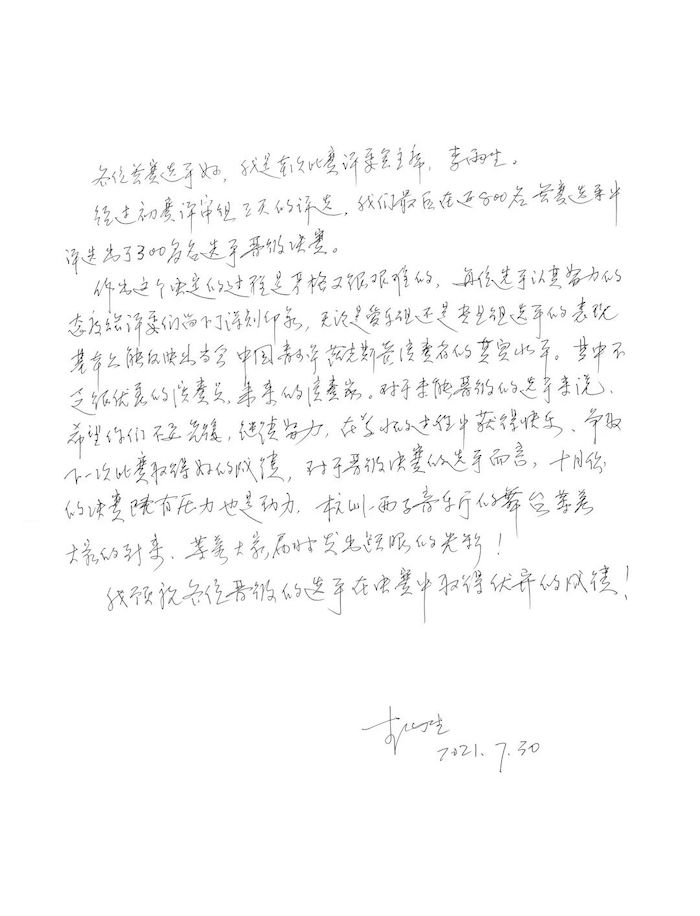 各位参赛选手好，我是本次比赛评委会主席，李雨生。
经过初赛评审组三天的评选，我们最后在近800名参赛选手中
评选出了300多名选手晋级决赛。
作出这个决定的过程是严格又很艰难的，每位选手认真努力的
态度给评委们留下了深刻印象，无论是爱乐组还是专业组选手的表现
基本上能反映出当今中国青少年萨克斯管演奏者的真实水平。其中不
乏很优秀的演奏员，未来的演奏家。对于未能晋级的选手来说，
希望你们不要气馁，继续努力，在学习的过程中获得快乐、争取
下一次比赛取得好的成绩，对于晋级决赛的选手而言，十月份
的决赛既有压力也是动力，杭州西子音乐厅的舞台等着
大家的到来、等着大家届时发出耀眼的光彩！
我预祝各位晋级的选手在决赛中取得优异的成绩！
李雨生
2021.7.30